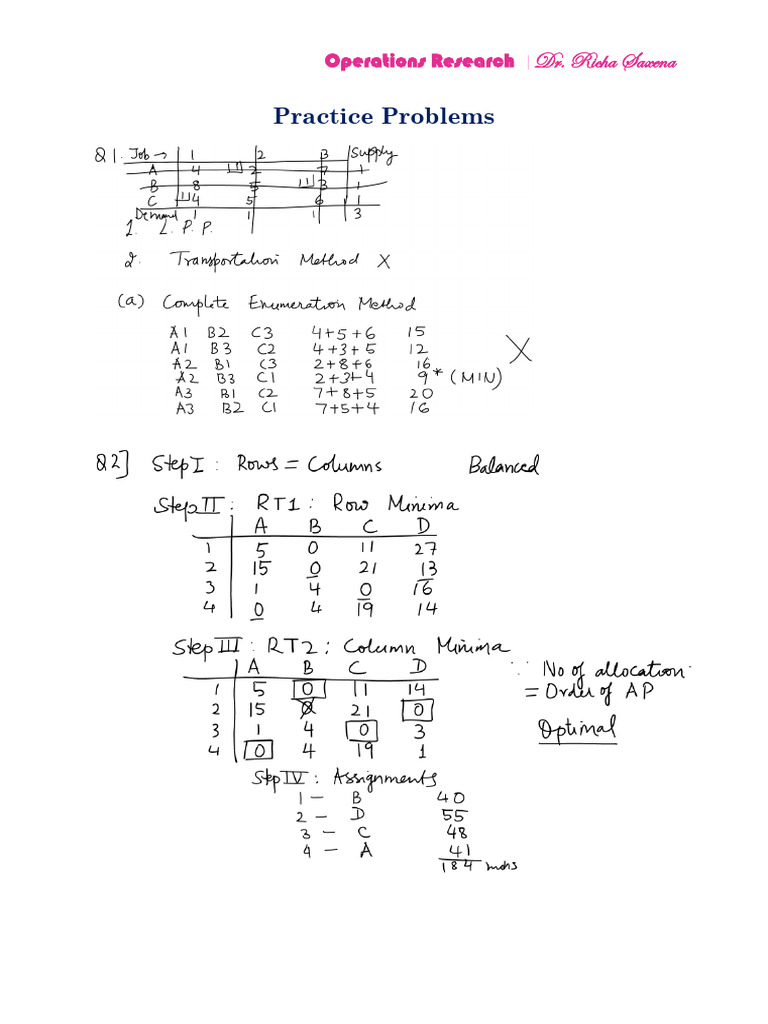 Operations Research | Dr. Richa Saxena
Practice Problems
Q1. Job → 1 2 3 Supply
A 4 [1] 2 7 1
B 8 5 [1] 3 1
C [1] 4 5 6 1
Demand 1 1 1 3
1. L. P. P.
2. Transportation Method X
(a) Complete Enumeration Method
A1 B2 C3 4+5+6 15
A1 B3 C2 4+3+5 12 X
A2 B1 C3 2+8+6 16
A2 B3 C1 2+3+4 9* (MIN)
A3 B1 C2 7+8+5 20
A3 B2 C1 7+5+4 16
Q2] Step I : Rows = Columns Balanced
Step II : RT1 : Row Minima
A B C D
1 5 0 11 27
2 15 0 21 13
3 1 4 0 16
4 0 4 19 14
Step III : RT2 : Column Minima
A B C D
1 5 0 11 14
2 15 0 21 0
3 1 4 0 3
4 0 4 19 1
∵ No of allocation
= Order of AP
Optimal
Step IV : Assignments
1 – B 40
2 – D 55
3 – C 48
4 – A 41
184